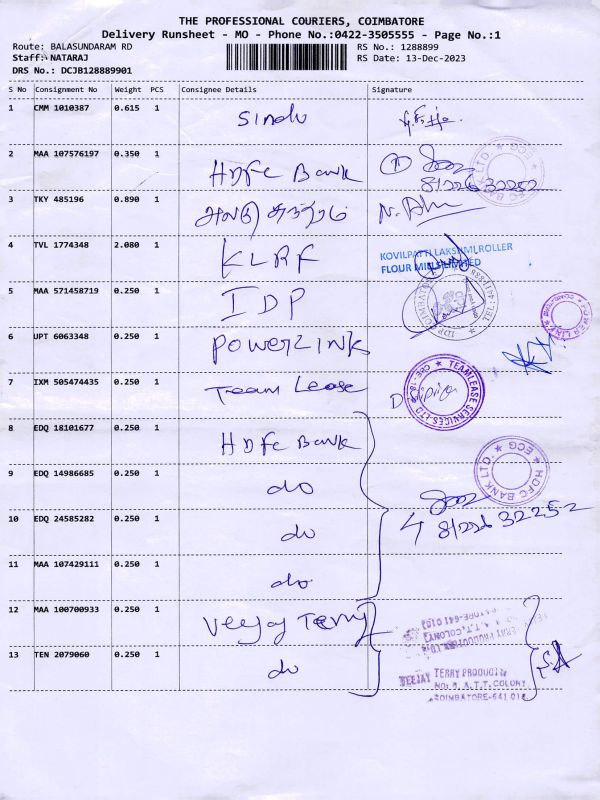 THE PROFESSIONAL COURIERS, COIMBATORE
Delivery Runsheet - MO - Phone No.:0422-3505555 - Page No.:1
Route: BALASUNDARAM RD RS No.: 1288899
Staff: NATARAJ RS Date: 13-Dec-2023
DRS No.: DCJB128889901
S No Consignment No Weight PCS Consignee Details Signature
1 CMM 1010387 0.615 1 Sindu
2 MAA 107576197 0.350 1 HDFC Bank
8122632252
HDFC BANK LTD. ECG
3 TKY 485196 0.890 1
4 TVL 1774348 2.080 1 KLRF
KOVILPATTI LAKSHMI ROLLER
FLOUR MILLS LIMITED
5 MAA 571458719 0.250 1 IDP
6 UPT 6063348 0.250 1 POWERLINK
POWER LINK
7 IXM 505474435 0.250 1 Team Lease
TEAMLEASE SERVICES LTD
8 EDQ 18101677 0.250 1 HDFC Bank
HDFC BANK LTD. ECG
9 EDQ 14986685 0.250 1 do
8122632252
10 EDQ 24585282 0.250 1 do
11 MAA 107429111 0.250 1 do
12 MAA 100700933 0.250 1 Veejay Terry
13 TEN 2079060 0.250 1 do
VEEJAY TERRY PRODUCTS
A.T.T. COLONY
COIMBATORE-641 018